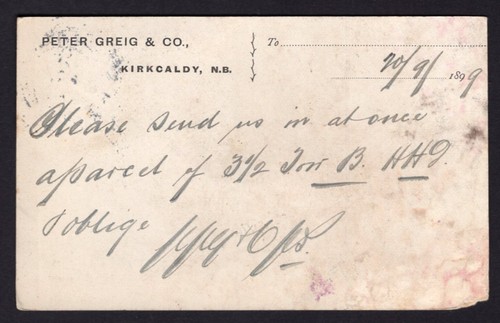 PETER GREIG & CO.,
KIRKCALDY, N.B.
To
20/9/ 1899
Please send us in at once
a parcel of 3½ Tow B. HHD.
& oblige